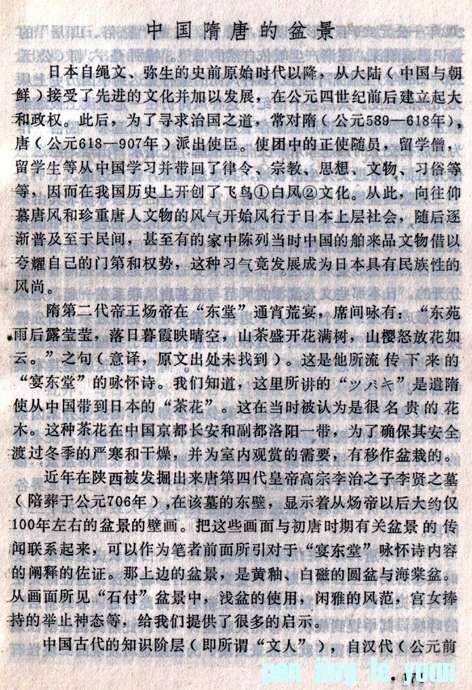 中国隋唐的盆景
日本自绳文、弥生的史前原始时代以降，从大陆（中国与朝
鲜）接受了先进的文化并加以发展，在公元四世纪前后建立起大
和政权。此后，为了寻求治国之道，常对隋（公元589—618年），
唐（公元618—907年）派出使臣。使团中的正使随员，留学僧，
留学生等从中国学习并带回了律令、宗教、思想、文物、习俗等
等，因而在我国历史上开创了飞鸟①白凤②文化。从此，向往仰
慕唐风和珍重唐人文物的风气开始风行于日本上层社会，随后逐
渐普及至于民间，甚至有的家中陈列当时中国的舶来品文物借以
夸耀自己的门第和权势，这种习气竟发展成为日本具有民族性的
风尚。
隋第二代帝王炀帝在“东堂”通宵荒宴，席间咏有：“东苑
雨后露莹莹，落日暮霞映晴空，山茶盛开花满树，山樱怒放花如
云。”之句（意译，原文出处未找到）。这是他所流传下来的
“宴东堂”的咏怀诗。我们知道，这里所讲的“ツバキ”是遣隋
使从中国带到日本的“茶花”。这在当时被认为是很名贵的花
木。这种茶花在中国京都长安和副都洛阳一带，为了确保其安全
渡过冬季的严寒和干燥，并为室内观赏的需要，有移作盆栽的。
近年在陕西被发掘出来唐第四代皇帝高宗李治之子李贤之墓
（陪葬于公元706年），在该墓的东壁，显示着从炀帝以后大约仅
100年左右的盆景的壁画。把这些画面与初唐时期有关盆景的传
闻联系起来，可以作为笔者前面所引对于“宴东堂”咏怀诗内容
的阐释的佐证。那上边的盆景，是黄釉、白磁的圆盆与海棠盆。
从画面所见“石付”盆景中，浅盆的使用，闲雅的风范，宫女捧
持的举止神态等，给我们提供了很多的启示。
中国古代的知识阶层（即所谓“文人”），自汉代（公元前
pen jing le yuan